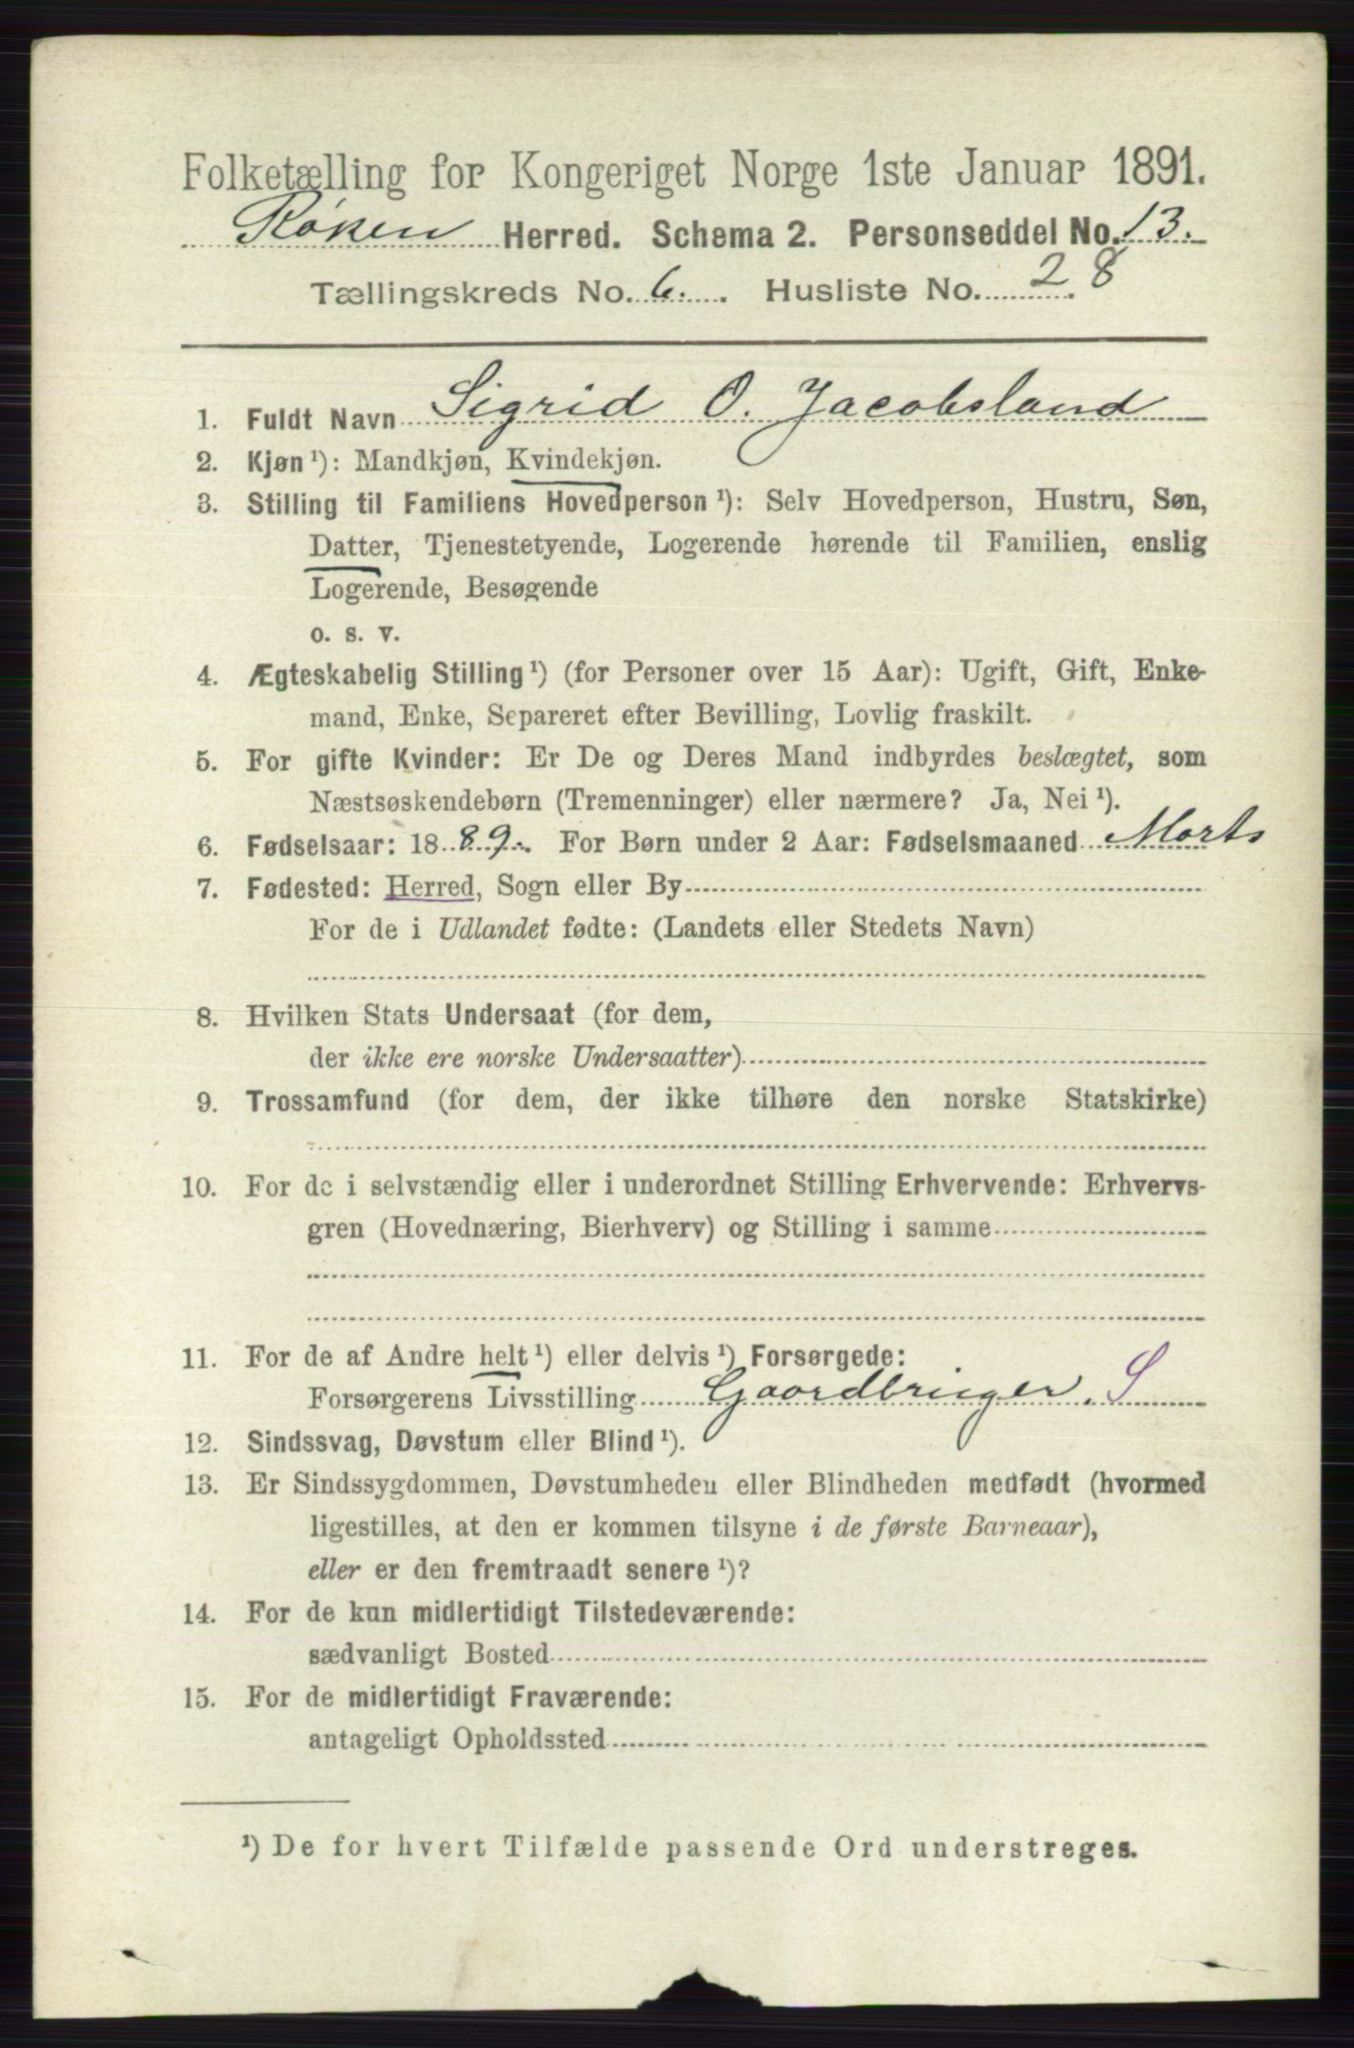 Folketælling for Kongeriget Norge 1ste Januar 1891.
Røken Herred. Schema 2. Personseddel No. 13.
Tællingskreds No. 6. Husliste No. 28
1. Fuldt Navn Sigrid O. Jacobsland
2. Kjøn¹): Mandkjøn, Kvindekjøn.
3. Stilling til Familiens Hovedperson¹): Selv Hovedperson, Hustru, Søn,
Datter, Tjenestetyende, Logerende hørende til Familien, enslig
Logerende, Besøgende
o. s. v.
4. Ægteskabelig Stilling¹) (for Personer over 15 Aar): Ugift, Gift, Enke-
mand, Enke, Separeret efter Bevilling, Lovlig fraskilt.
5. For gifte Kvinder: Er De og Deres Mand indbyrdes beslægtet, som
Næstsøskendebørn (Tremenninger) eller nærmere? Ja, Nei¹).
6. Fødselsaar: 1889. For Børn under 2 Aar: Fødselsmaaned Marts
7. Fødested: Herred, Sogn eller By
For de i Udlandet fødte: (Landets eller Stedets Navn)
8. Hvilken Stats Undersaat (for dem,
der ikke ere norske Undersaatter)
9. Trossamfund (for dem, der ikke tilhøre den norske Statskirke)
10. For de i selvstændig eller i underordnet Stilling Erhvervende: Erhvervs-
gren (Hovednæring, Bierhverv) og Stilling i samme
11. For de af Andre helt¹) eller delvis¹) Forsørgede:
Forsørgerens Livsstilling Gaardbruger. S
12. Sindssvag, Døvstum eller Blind¹).
13. Er Sindssygdommen, Døvstumheden eller Blindheden medfødt (hvormed
ligestilles, at den er kommen tilsyne i de første Barneaar),
eller er den fremtraadt senere¹)?
14. For de kun midlertidigt Tilstedeværende:
sædvanligt Bosted
15. For de midlertidigt Fraværende:
antageligt Opholdssted
¹) De for hvert Tilfælde passende Ord understreges.